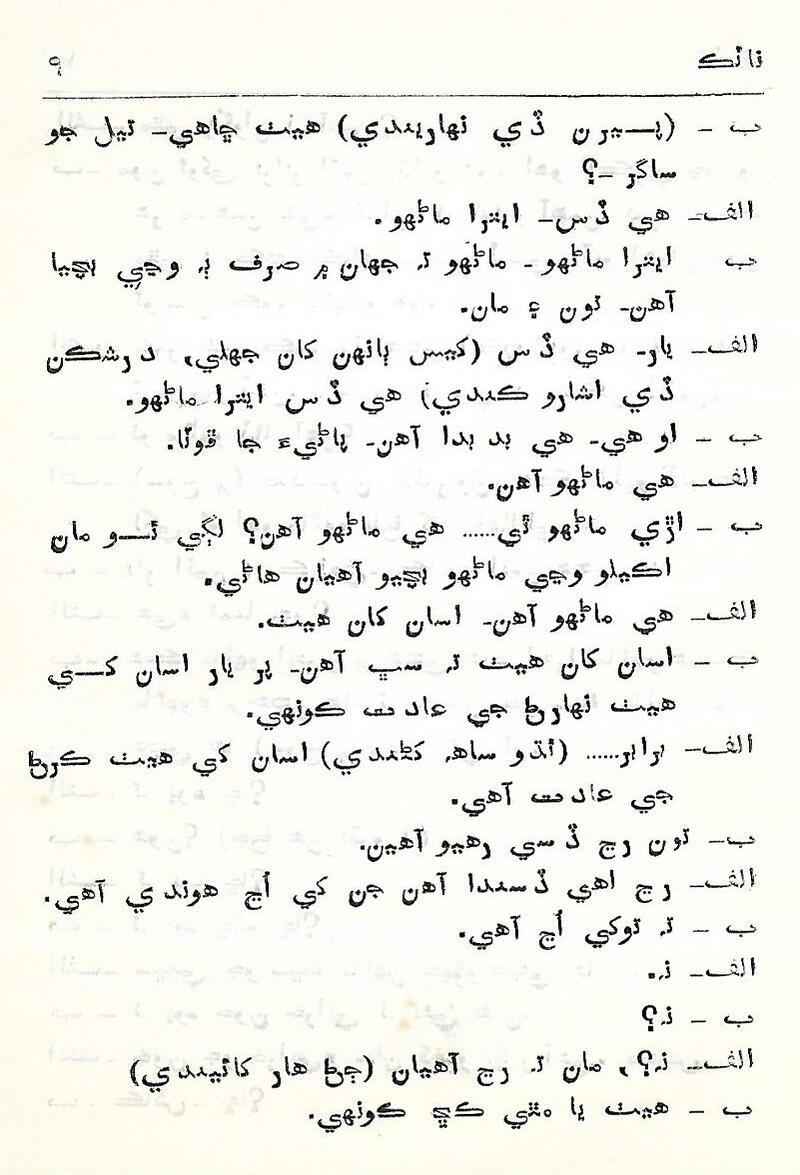 ناٽڪ ٩
ب – (پـــيرن ڏي نهاريندي) هيٺ ڇاهي– تيل جو
ساگر –؟
الف– هي ڏس– ايترا ماڻهو.
ب – ايترا ماڻهو– ماڻهو ته جهان ۾ صرف ٻه وڃي بچيا
آهن– تون ۽ مان.
الف– يار– هي ڏس (کيس ٻانهن کان جهلي، درشڪن
ڏي اشارو ڪندي) هي ڏس ايترا ماڻهو.
ب – او هي– هي بدبدا آهن– پاڻيءَ جا ڦوٽا.
الف– هي ماڻهو آهن.
ب – اڙي ماڻهو ٿي...... هي ماڻهو آهن؟ لڳي ٿـــو مان
اڪيلو وڃي ماڻهو بچيو آهيان هاڻي.
الف– هي ماڻهو آهن– اسان کان هيٺ.
ب – اسان کان هيٺ ته سڀ آهن– پر يار اسان کـــي
هيٺ نهارڻ جي عادت ڪونهي.
الف– برابر...... (ٿڌو ساهه کڻندي) اسان کي هيٺ ڪرڻ
جي عادت آهي.
ب– تون رڃ ڏسي رهيو آهين.
الف– رڃ اهي ڏسندا آهن جن کي اُڃ هوندي آهي.
ب – ته توکي اُڃ آهي.
الف– نه.
ب – نه؟
الف– نه؟، مان ته رڃ آهيان (ڄڻ هار کائيندي)
ب – هيٺ يا مٿي ڪڇ ڪونهي.